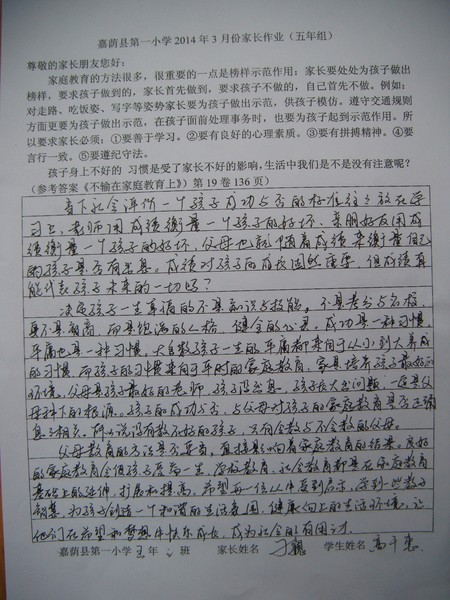 嘉荫县第一小学 2014 年 3 月份家长作业（五年组）
尊敬的家长朋友您好：
家庭教育的方法很多，很重要的一点是榜样示范作用；家长要处处为孩子做出
榜样，要求孩子做到的，家长首先做到，要求孩子不做的，自己首先不做。例如：
对走路、吃饭姿、写字等姿势家长要为孩子做出示范，供孩子模仿。遵守交通规则
方面更要为孩子做出示范，在孩子面前处理事务时，也要为孩子起到示范作用。所
以要求家长必须：①要善于学习。②要有良好的心理素质。③要有拼搏精神。④要
言行一致。⑤要遵纪守法。
孩子身上不好的 习惯是受了家长不好的影响，生活中我们是不是没有准呢？
（参考答案《不输在家庭教育上》）第 19 卷 136 页）
当下社会评价一个孩子成功与否的标准往往放在学
习上，老师用成绩衡量一个孩子的好坏，亲朋好友用成
绩衡量一个孩子的好坏，父母也就随着成绩来衡量自己
的孩子是否有出息。成绩对孩子的成长固然重要，但成绩真
能代表孩子未来的一切吗？
决定孩子一生幸福的不是知识与技能，不是考分与名校，
更不是智商，而是饱满的人格，健全的心灵。成功是一种习惯，
平庸也是一种习惯，大多数孩子一生的平庸都来自于从小到大养成
的习惯，而孩子的习惯来自于平时的家庭教育，家是培养孩子最好的
环境，父母是孩子最好的老师，孩子没出息，孩子长大出问题，一定是父
母种下的根源。孩子的成功与否，与父母对孩子的家庭教育是否正确
息息相关。所以说没有教不好的孩子，只有会教与不会教的父母。
父母教育的方法是否妥当，直接影响着家庭教育的结果。良好
的家庭教育会使孩子受益一生，学校教育，社会教育都是在家庭教育
基础上的延伸，扩展和提高，希望每一位从中受到启示，学到一些教子
为孩子创造一个和谐的生活空间，健康向上的生活环境，让
他们在希望和梦想中快乐成长，成为社会的有用之才。
嘉荫县第一小学 五 年 班 家长姓名 学生姓名